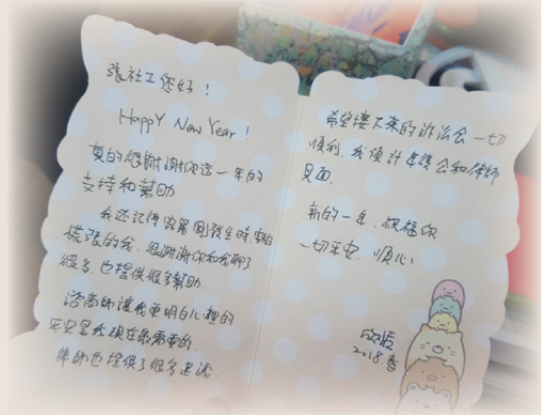 張社工您好！
Happy New Year！
真的很感謝你這一年的
支持和幫助
我还記得家暴剛發生時,
慌張的我.很謝謝你和我聊了
很多,也提供很多幫助.
諮商師讓我更明白心裡的
平安是我現在最需要的.
律師也提供了很多建議.
希望接下來的訴訟会一切
順利.我預計年後会和律師
見面.
新的一年.祝福你
一切平安.順心
2018.春